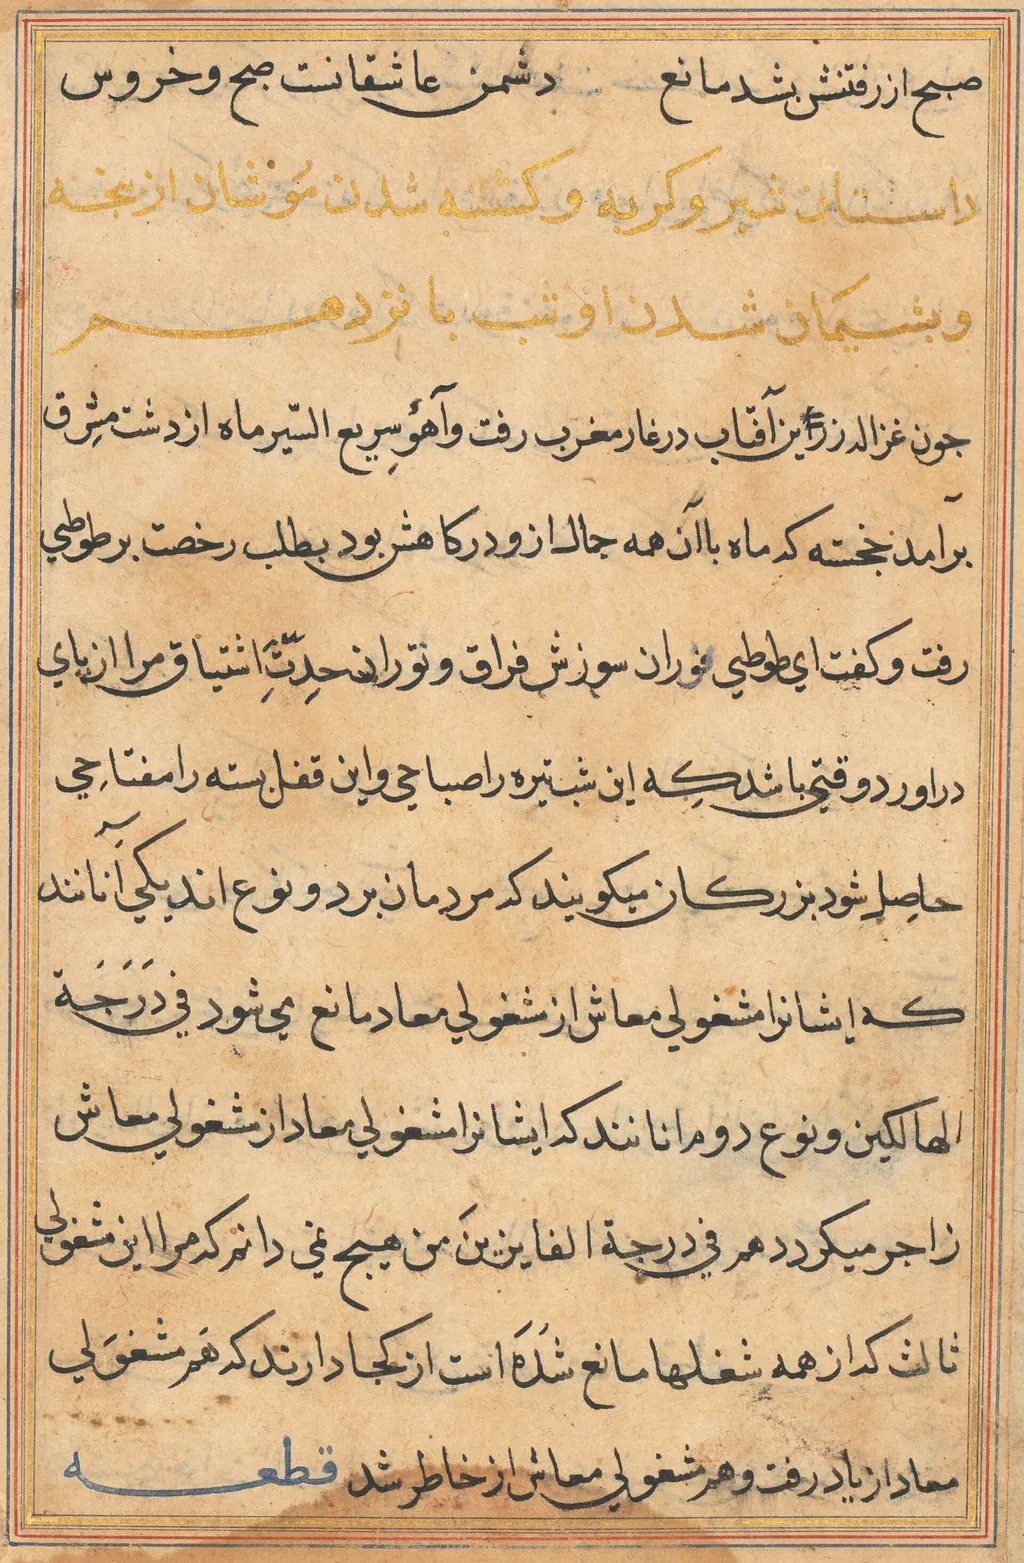 صبح از رفتنش بشد مانع دشمن عاشقانست صبح و خروس
داستان شیر و کربه و کشته شدن مُوشان از بچه
و بشیمان شدن او شب بانزدهم
جون غزاله زرّین آفتاب در غار مغرب رفت و آهؤِ سرِیع السّیر ماه از دشت مشرِق
برآمد خجسته که ماه باآن همه جمال ازو در کاهش بود بطلب رخصت بر طوطي
رفت و کفت اي طوطي فوران سوزش فراق و نوران حدِّثَِ اشتیاق مرا از باي
دراورد وقتي باشد کِه این شب تیره را صباحي و این قفل بسته را مفتاحِي
حاصِل شود بزرکان میکویند که مردمان بر دو نوع اند یکي آنانند
که ایشانرا مشغولي معاش از مشغولي معاد مانع مي شود في دَرَجَة
الهالکین و نوع دوم انانند که ایشانرا مشغولي معاد از مشغولي معاش
زاجر میکردد هم في درجة الفایزینَ من هیج نمي دانم که مرا این مشغولي
ثالث که از همه شغلها مانع شُدَه است از کجا دارند که هَم مشغوَلي
معاد از یاد رفت و هم مشغولي معاش از خاطر شد قطعه